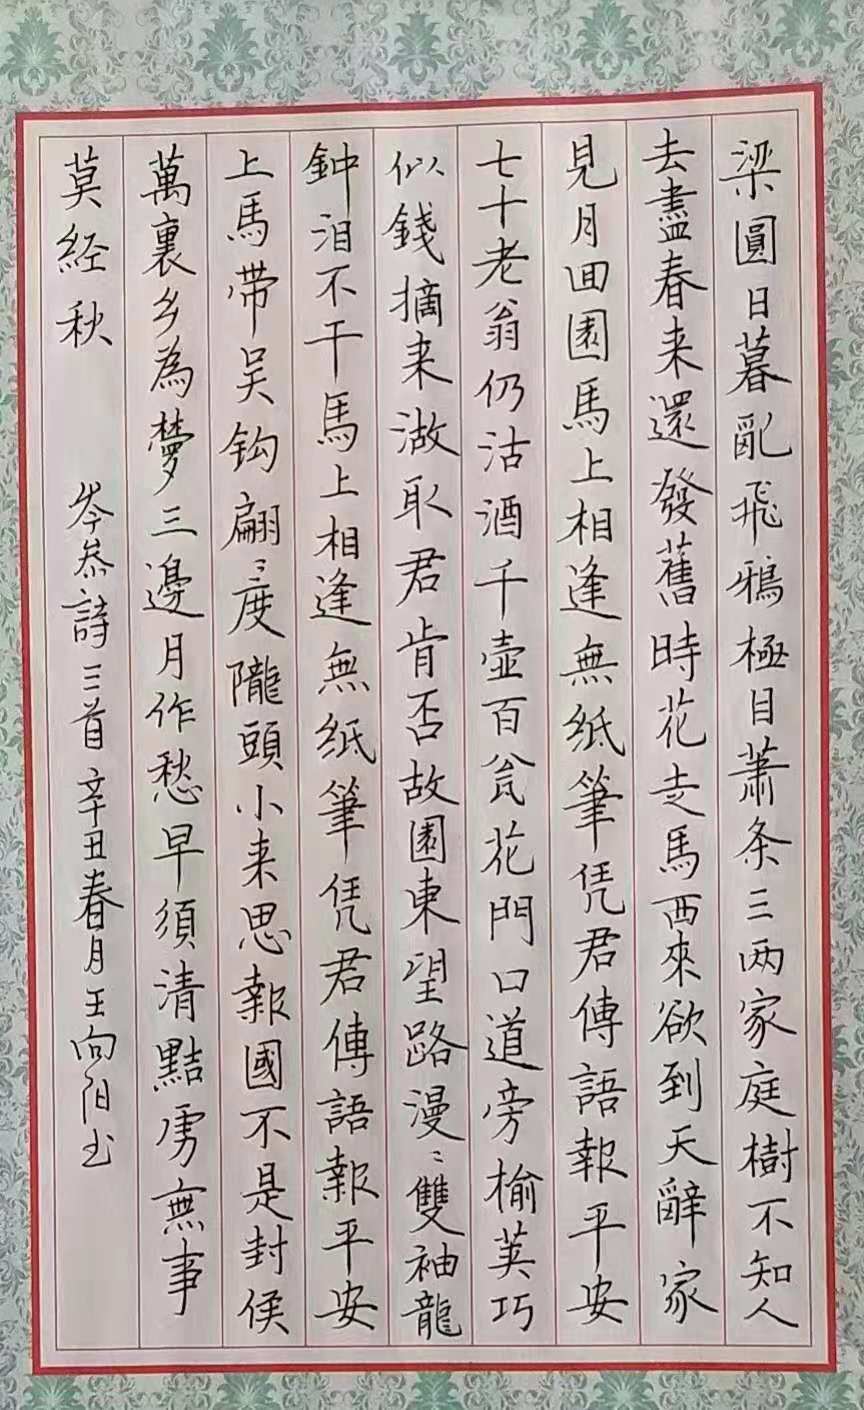 梁圓日暮亂飛鴉極目蕭条三两家庭樹不知人
去盡春来還發舊時花走馬西來欲到天辭家
見月回園馬上相逢無紙筆凭君傳語報平安
七十老翁仍沽酒千壺百瓮花門口道旁榆荚巧
似錢摘来沽取君肯否故園東望路漫〻雙袖龍
鈡泪不干馬上相逢無紙筆凭君傳語報平安
上馬带吴鈎翩〻度隴頭小来思報國不是封侯
萬裏乡為夢三邊月作愁早須清黠虜無事
莫経秋 岑参詩三首辛丑春月王向阳书